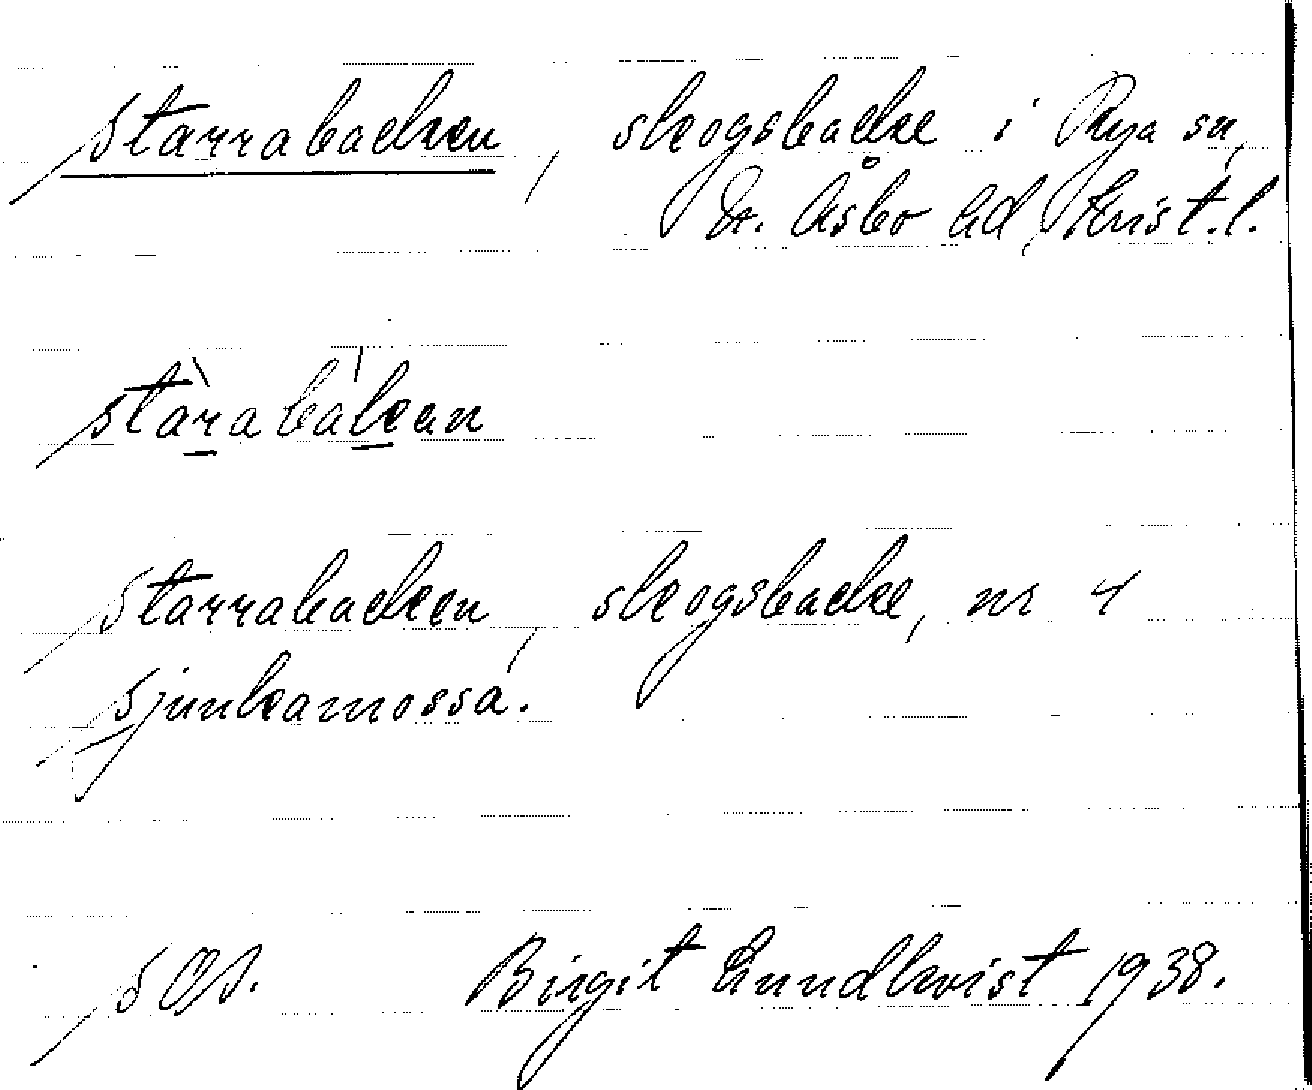 Starrabacken, skogsbacke i Rya sn,
N. Åsbo hd, Krist.l.
stàrabák̲an
Starrabacken, skogsbacke, nr 4
Sjunkamossa.
SOA. Birgit Lundkvist 1938.